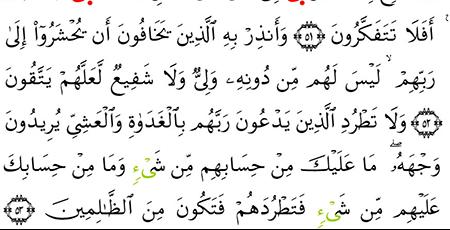 أَفَلَا تَتَفَكَّرُونَ ﴿٥١﴾ وَأَنذِرْ بِهِ ٱلَّذِينَ يَخَافُونَ أَن يُحْشَرُوٓا۟ إِلَىٰ
رَبِّهِمْ ۙ لَيْسَ لَهُم مِّن دُونِهِۦ وَلِىٌّ وَلَا شَفِيعٌ لَّعَلَّهُمْ يَتَّقُونَ
﴿٥٢﴾ وَلَا تَطْرُدِ ٱلَّذِينَ يَدْعُونَ رَبَّهُم بِٱلْغَدَوٰةِ وَٱلْعَشِىِّ يُرِيدُونَ
وَجْهَهُۥ ۖ مَا عَلَيْكَ مِنْ حِسَابِهِم مِّن شَىْءٍ وَمَا مِنْ حِسَابِكَ
عَلَيْهِم مِّن شَىْءٍ فَتَطْرُدَهُمْ فَتَكُونَ مِنَ ٱلظَّـٰلِمِينَ ﴿٥٣﴾